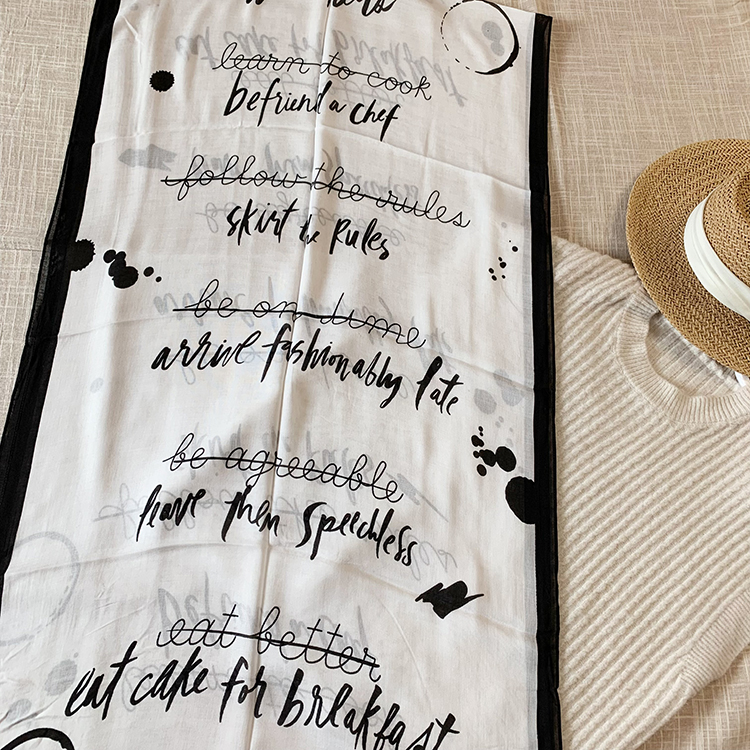 learn to cook
befriend a chef
follow the rules
skirt the rules
be on time
arrive fashionably late
be agreeable
leave them speechless
eat better
eat cake for breakfast